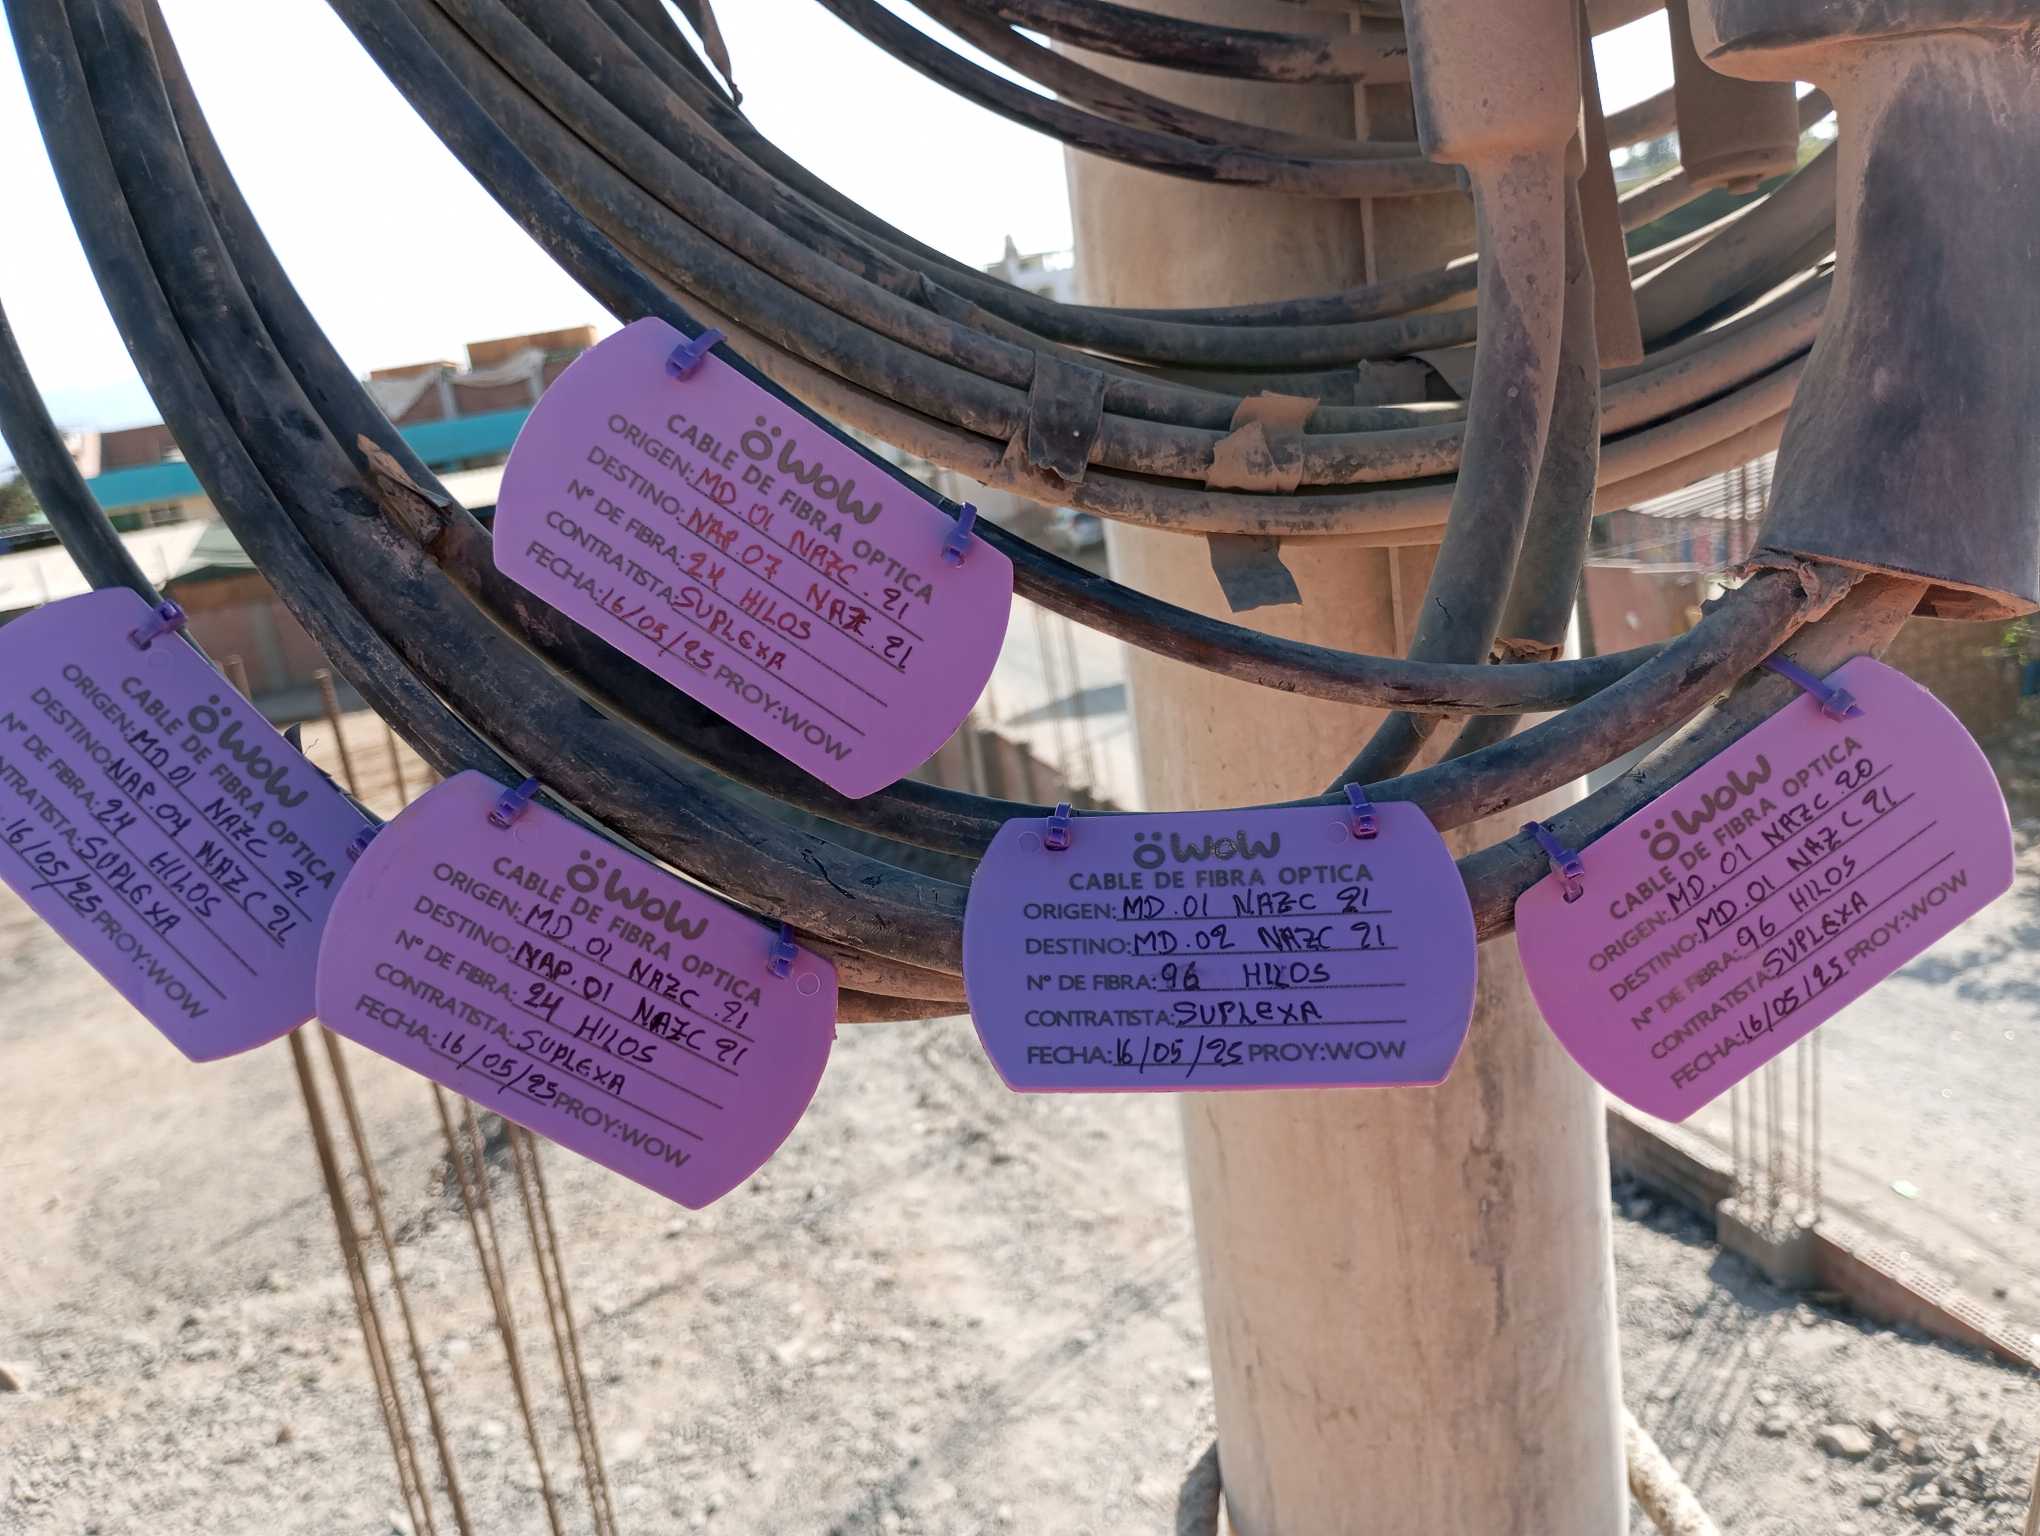 wow
CABLE DE FIBRA OPTICA
ORIGEN: MD.01 NAZC. 21
DESTINO: NAP.07 NAZC. 21
N° DE FIBRA: 24 HILOS
CONTRATISTA: SUPLEXA
FECHA: 16/05/25 PROY:WOW
wow
CABLE DE FIBRA OPTICA
ORIGEN: MD 01 NAZC 21
DESTINO: NAP.04 NAZC 21
N° DE FIBRA: 24 HILOS
NTRATISTA: SUPLEXA
16/05/25 PROY:WOW
wow
CABLE DE FIBRA OPTICA
ORIGEN: MD.01 NAZC 21
DESTINO: NAP.01 NAZC 21
N° DE FIBRA: 24 HILOS
CONTRATISTA: SUPLEXA
FECHA: 16/05/25 PROY:WOW
wow
CABLE DE FIBRA OPTICA
ORIGEN: MD.01 NAZC 21
DESTINO: MD.02 NAZC 21
N° DE FIBRA: 96 HILOS
CONTRATISTA: SUPLEXA
FECHA: 16/05/25 PROY:WOW
wow
CABLE DE FIBRA OPTICA
ORIGEN: MD.01 NAZC 20
DESTINO: MD.01 NAZC 21
N° DE FIBRA: 96 HILOS
CONTRATISTA: SUPLEXA
FECHA: 16/05/25 PROY:WOW